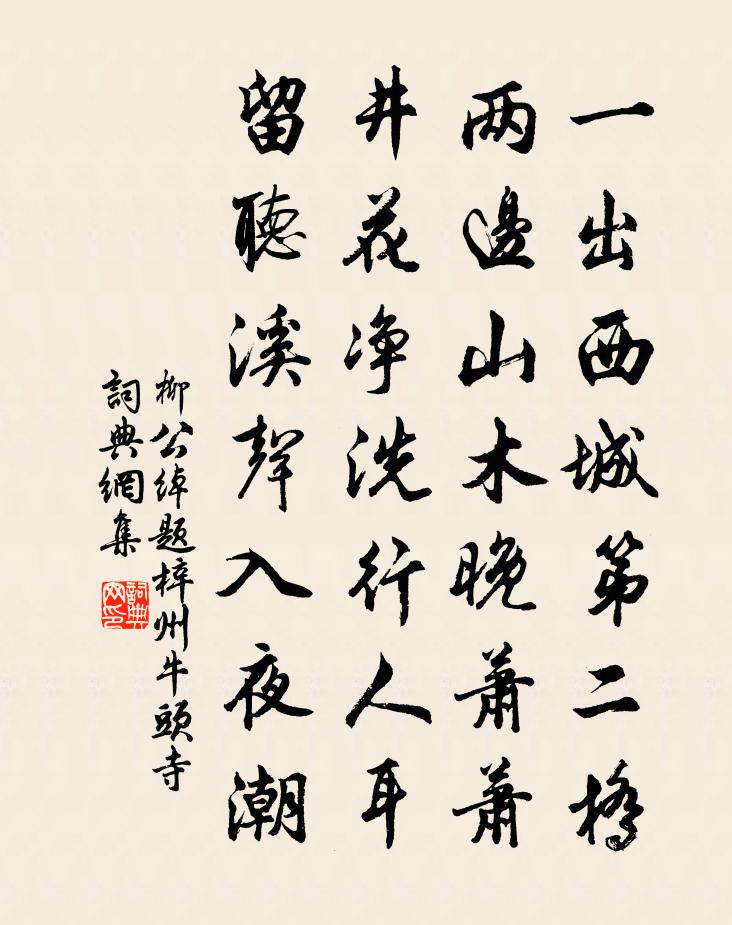 一出西城第二橋
兩邊山木晚蕭蕭
井花淨洗行人耳
留聽溪聲入夜潮
柳公綽題梓州牛頭寺
詞典網集
詞典网印